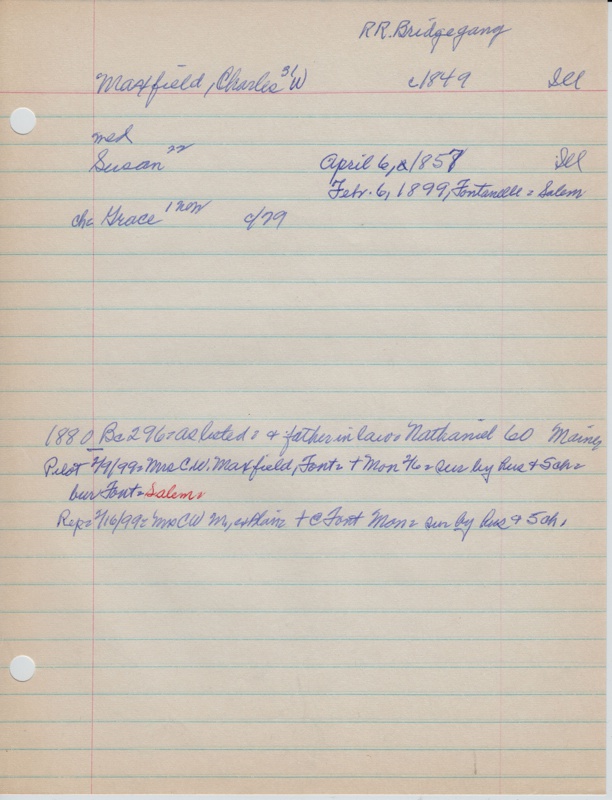 RR. Bridgegang
Maxfield, Charles 31 W c1849 Ill
md
Susan 22 April 6, c1857 Ill
Febr. 6, 1899, Fontanelle = Salem
ch= Grace 1 c/79
1880 Bc 296= as listed= & father in law= Nathaniel 60 Maine
Pilot 2/9/99= Mrs C.W. Maxfield, Font= + Mon 2/6= sur by hus & 5 ch=
bur Font= Salem=
Rep= 2/16/99= Mrs CW M, + @ Font Mon= sur by hus & 5 ch.